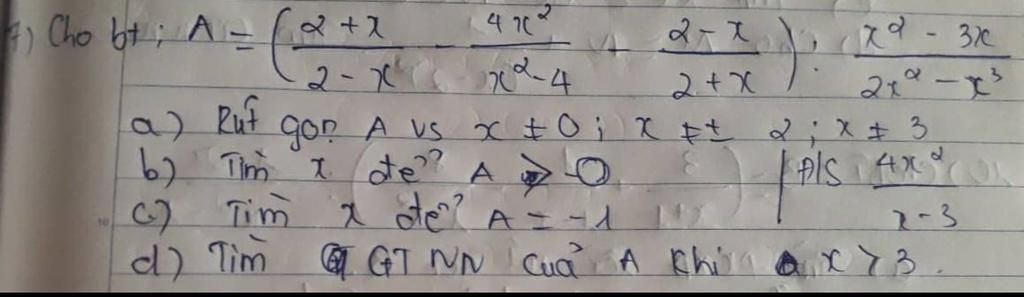 7) Cho bt: A = ( (2 + x)/(2 - x) - 4x²/(x² - 4) - (2 - x)/(2 + x) ) : (x² - 3x)/(2x² - x³)
a) Rút gọn A vs x ≠ 0; x ≠ ± 2; x ≠ 3
b) Tìm x để A > 0 | Đ/S 4x²/(x - 3)
c) Tìm x để A = -1
d) Tìm GTNN của A khi x > 3.